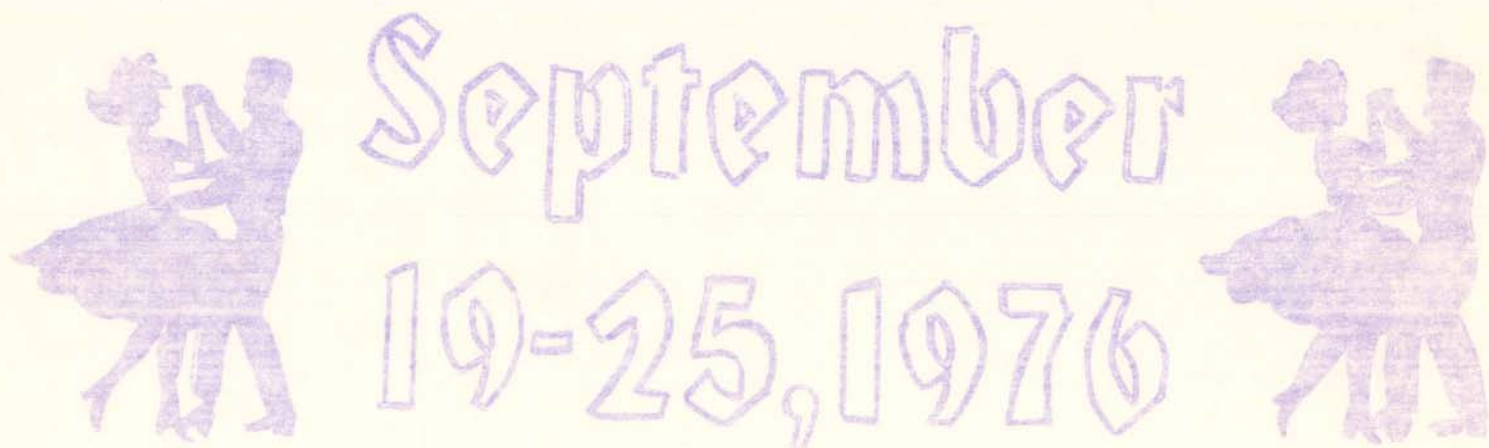 September
19-25,1976